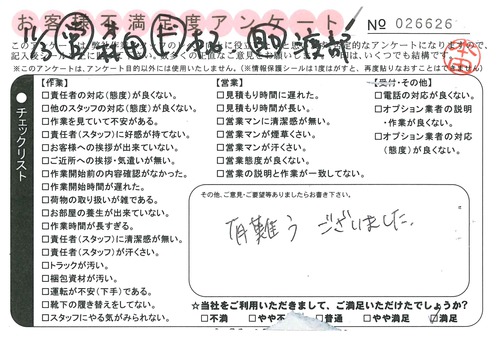 お客様不満足度アンケート
No 026626
※このアンケートは、アンケート目的以外には使用いたしません。(※情報保護シールは1度はがすと、再度貼りなおすことはできません)
チェックリスト
【作業】
□責任者の対応(態度)が良くない。
□他のスタッフの対応(態度)が良くない。
□作業を見ていて不安がある。
□責任者(スタッフ)に好感が持てない。
□お客様への挨拶が出来ていない。
□ご近所への挨拶・気遣いが無い。
□作業開始前の内容確認がなかった。
□作業開始時間が遅れた。
□荷物の取り扱いが雑である。
□お部屋の養生が出来ていない。
□作業時間が長すぎる。
□責任者(スタッフ)に清潔感が無い。
□責任者(スタッフ)が汗くさい。
□トラックが汚い。
□梱包資材が汚い。
□運転が不安(下手)である。
□靴下の履き替えをしてない。
□スタッフにやる気がみられない。
【営業】
□見積もり時間に遅れた。
□見積もり時間が長い。
□営業マンに清潔感が無い。
□営業マンが煙草くさい。
□営業マンが汗くさい。
□営業態度が良くない。
□営業の説明と作業が一致してない。
【受付・その他】
□電話の対応が良くない。
□オプション業者の説明
・作業が良くない。
□オプション業者の対応
(態度)が良くない。
その他、ご意見・ご要望等ありましたらお書き下さい。
有難う ございました.
☆当社をご利用いただきまして、ご満足いただけたでしょうか?
□不満 □やや不 □普通 □やや満足 満足